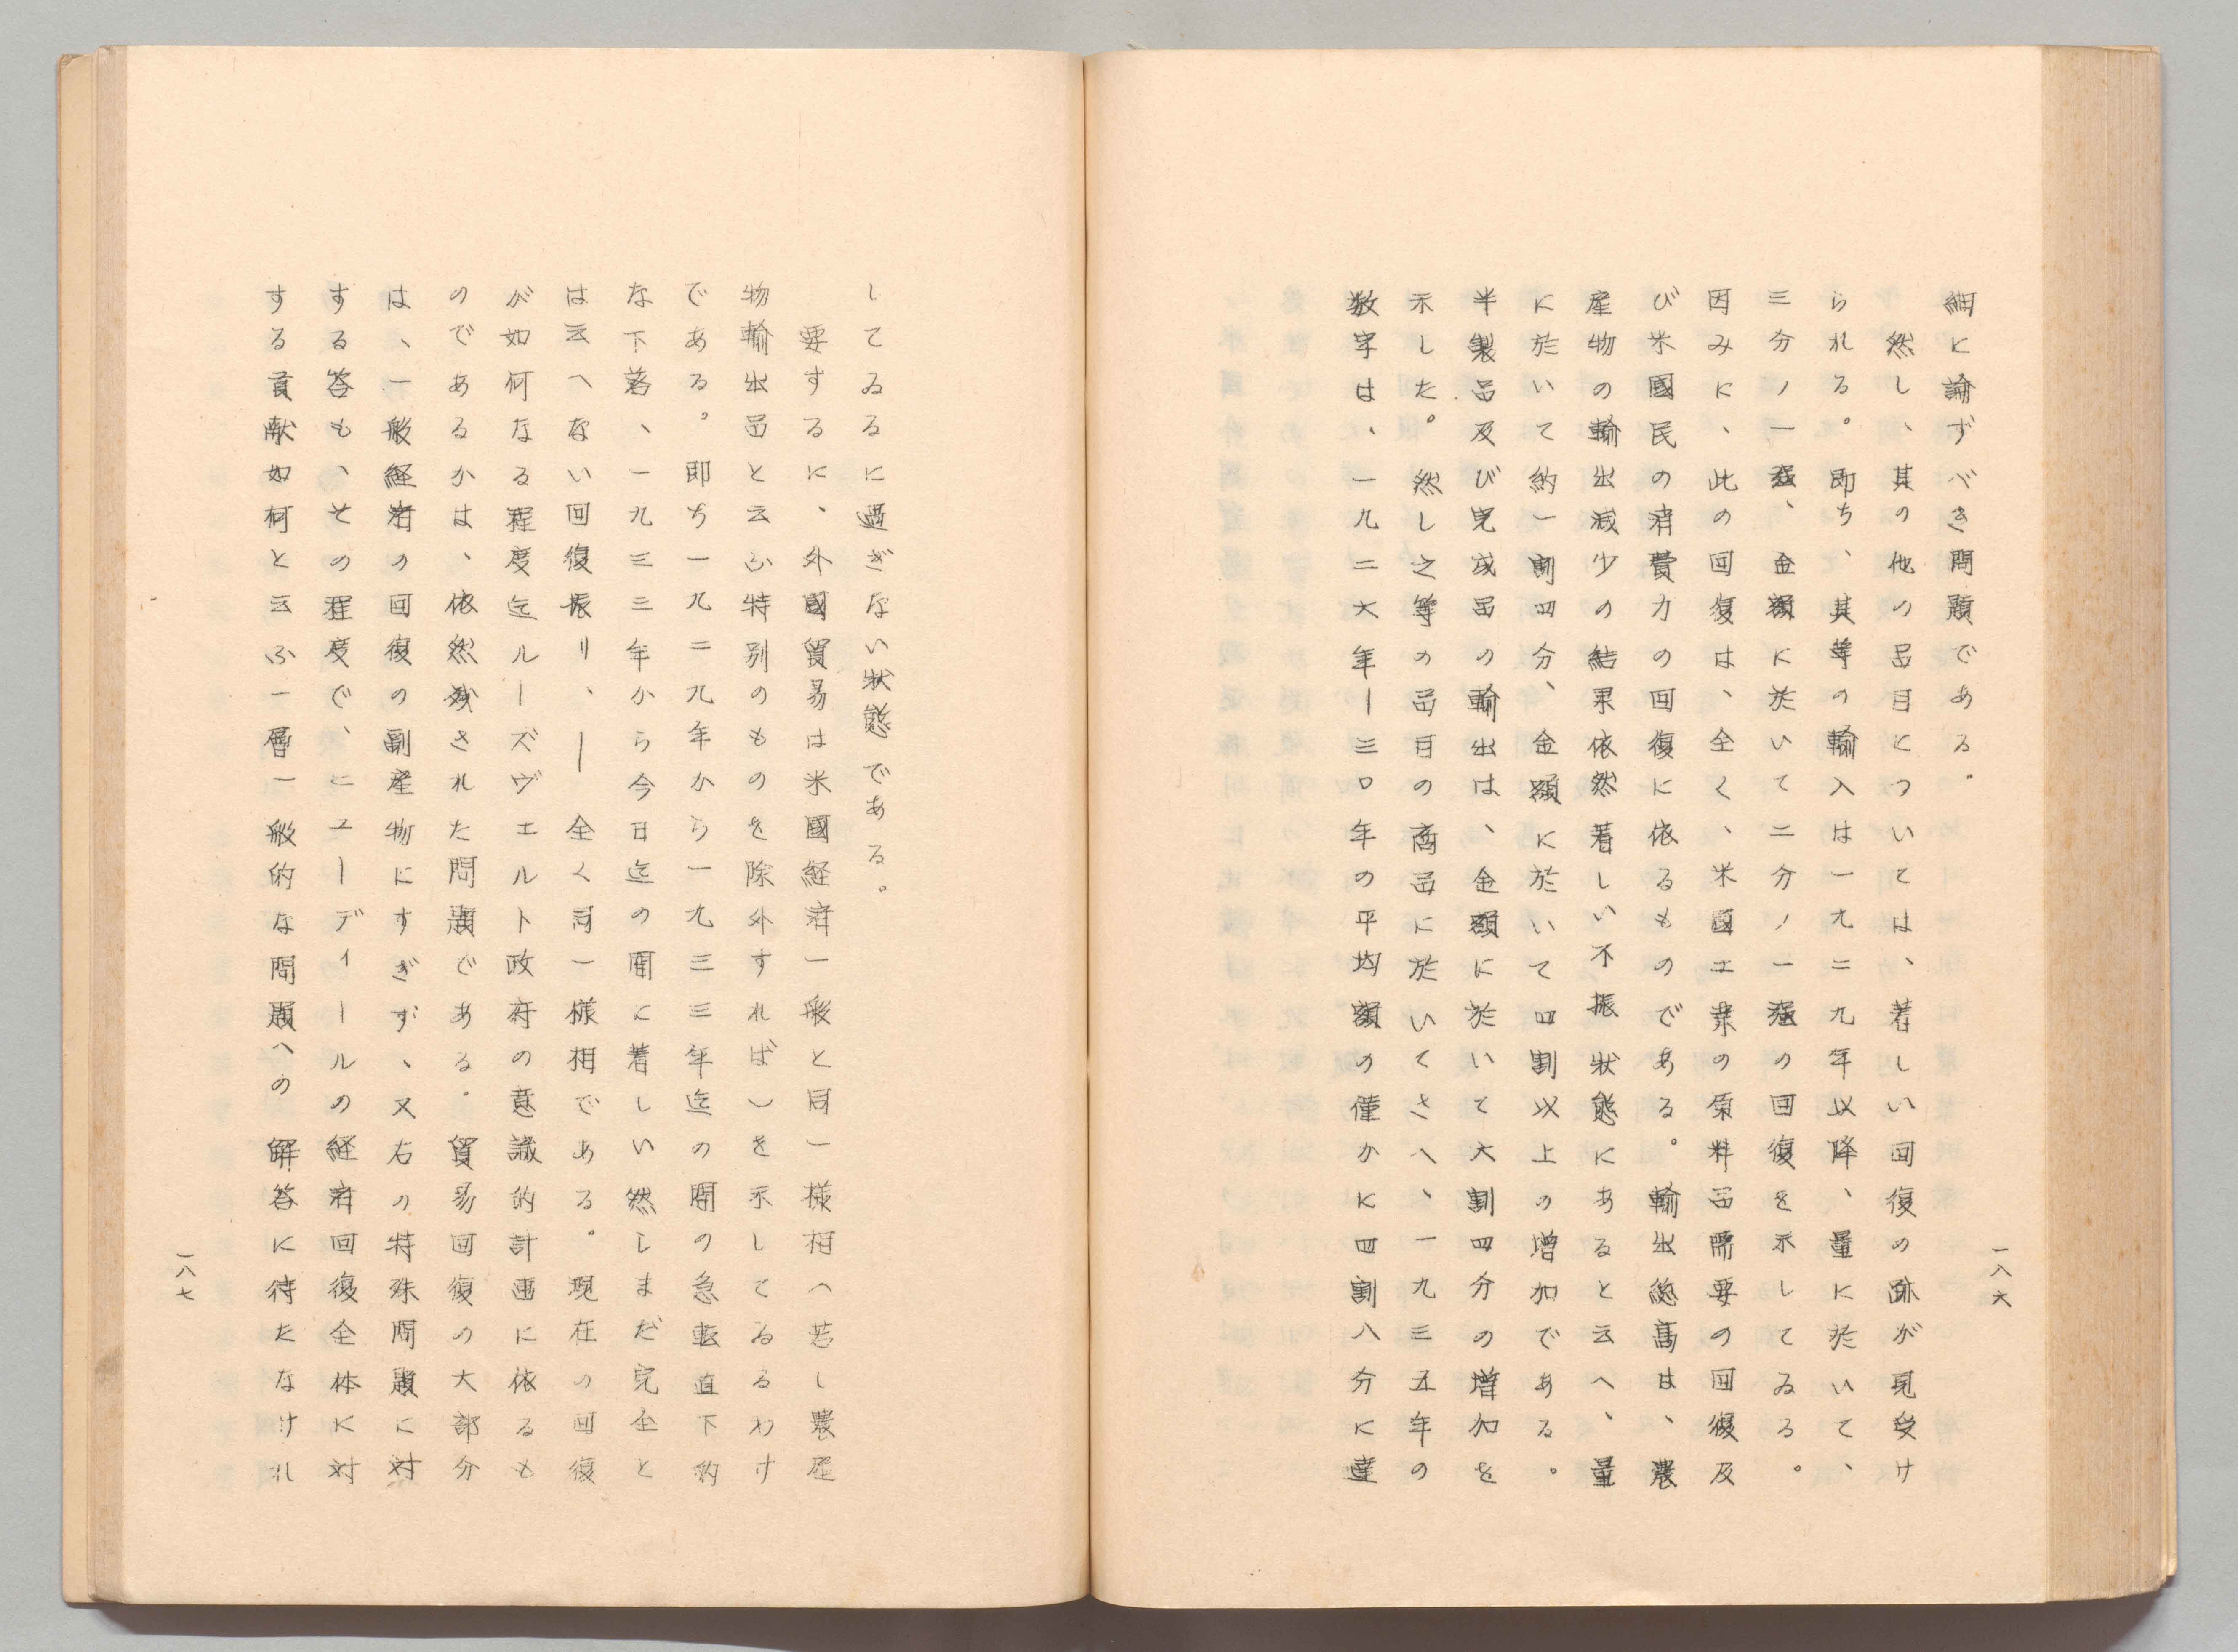 細に論ずべき問題である。
然し、其の他の品目については、著しい回復の跡が見受け
られる。即ち、其等の輸入は一九二九年以降、量に於いて、
三分ノ一強、金額に於いて二分ノ一強の回復を示してゐる。
因みに、此の回復は、全く、米國工業の原料品需要の回復及
び米國民の消費力の回復に依るものである。輸出総高は、農
産物の輸出減少の結果依然著しい不振状態にあると云へ、量
に於いて約一割四分、金額に於いて四割以上の増加である。
半製品及び完成品の輸出は、金額に於いて六割四分の増加を
示した。然し之等の品目の商品に於いてさへ、一九三五年の
数字は、一九二六年ー三〇年の平均額の僅かに四割八分に達
一八六
してゐるに過ぎない状態である。
要するに、外國貿易は米國経済一般と同一様相（若し農産
物輸出品と云ふ特別のものを除外すれば）を示してゐるわけ
である。即ち一九二九年から一九三三年迄の間の急転直下的
な下落、一九三三年から今日迄の間に著しい然しまだ完全と
は云へない回復振り、ー全く同一様相である。現在の回復
が如何なる程度迄ルーズヴエルト政府の意識的計画に依るも
のであるかは、依然残された問題である。貿易回復の大部分
は、一般経済の回復の副産物にすぎず、又右の特殊問題に対
する答も、その程度で、ニューディールの経済回復全体に対
する貢献如何と云ふ一層一般的な問題への解答に待たなけれ
一八七